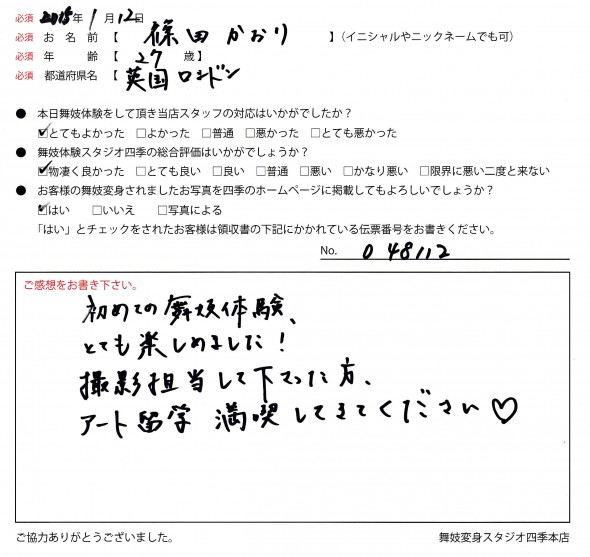 必須 2015年 1月 12日
必須 お名前【 篠田 かおり 】(イニシャルやニックネームでも可)
必須 年 齢【 27 歳】
必須 都道府県名【 英国 ロンドン
● 本日舞妓体験をして頂き当店スタッフの対応はいかがでしたか?
☑とてもよかった □よかった □普通 □悪かった □とても悪かった
● 舞妓体験スタジオ四季の総合評価はいかがでしょうか?
☑物凄く良かった □とても良い □良い □普通 □悪い □かなり悪い □限界に悪い二度と来ない
● お客様の舞妓変身されましたお写真を四季のホームページに掲載してもよろしいでしょうか?
☑はい □いいえ □写真による
「はい」とチェックをされたお客様は領収書の下記にかかれている伝票番号をお書きください。
No. 048112
ご感想をお書き下さい。
初めての舞妓体験、
とても楽しめました!
撮影担当して下さった方、
アート留学 満喫してきてください♡
ご協力ありがとうございました。 舞妓変身スタジオ四季本店